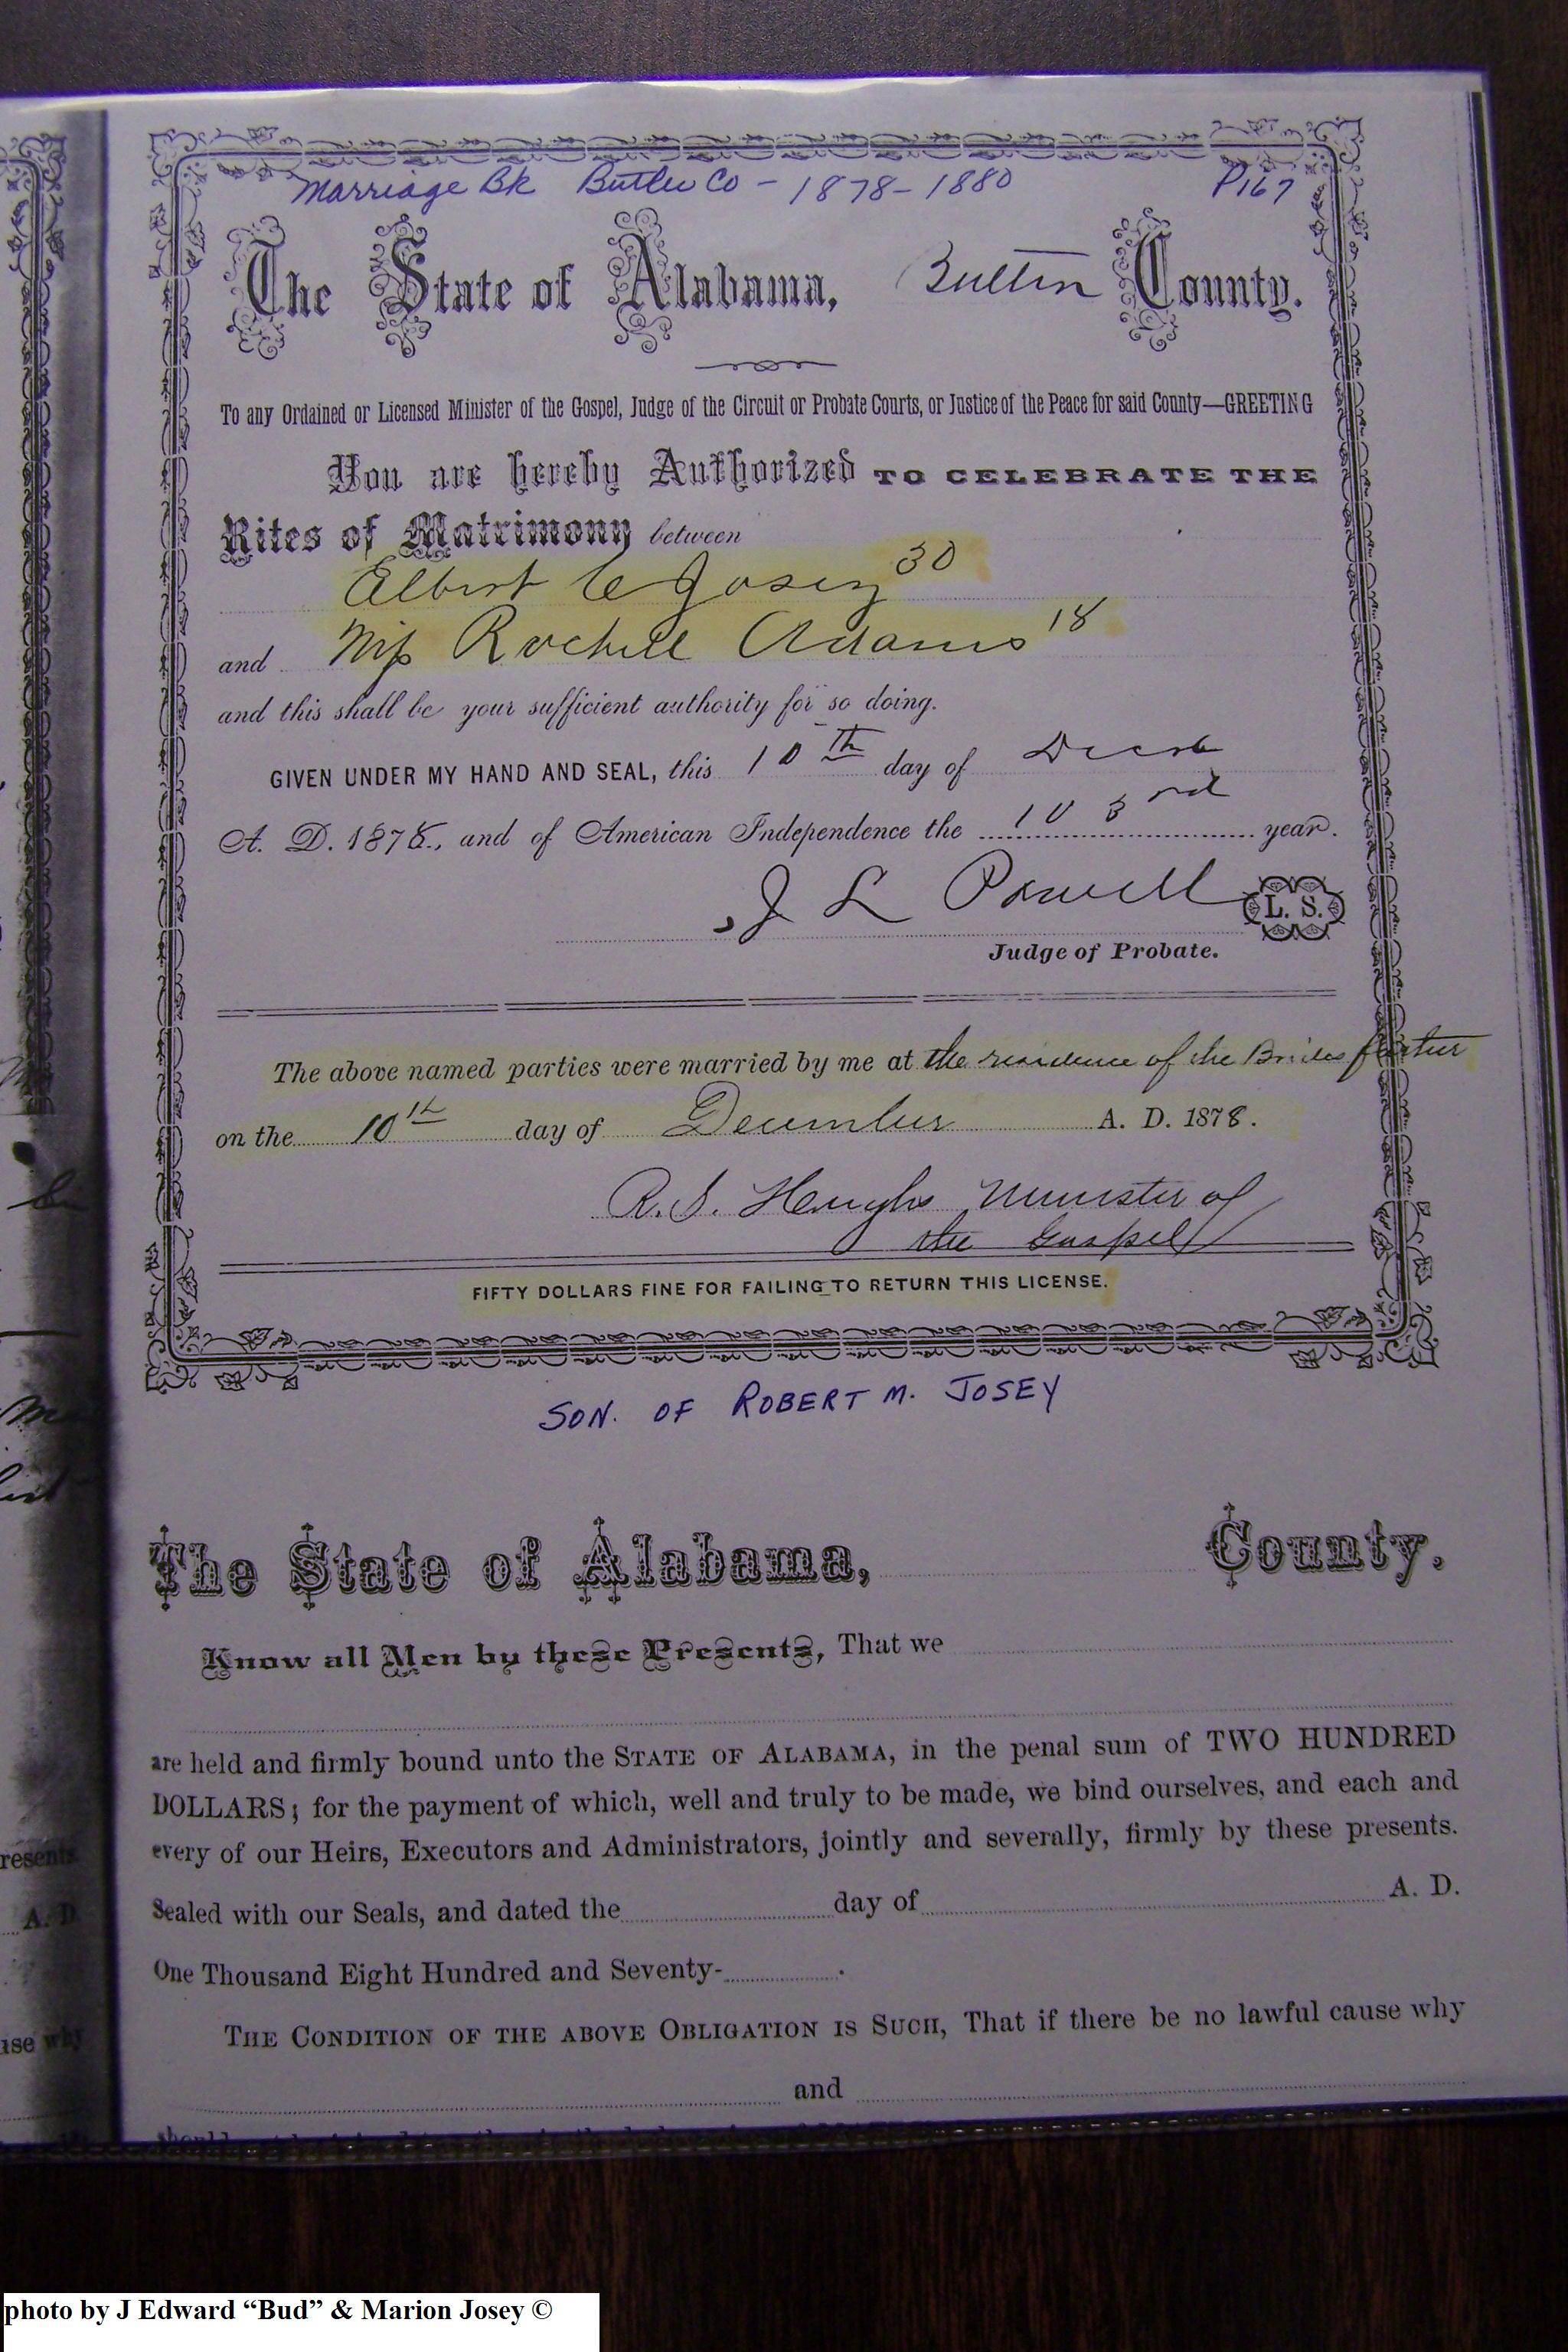 Marriage Bk Butler Co - 1878-1880 P167
The State of Alabama, Butler County.
To any Ordained or Licensed Minister of the Gospel, Judge of the Circuit or Probate Courts, or Justice of the Peace for said County—GREETING
You are hereby Authorized TO CELEBRATE THE
Rites of Matrimony between
Elbert C Josey 30
and Miss Rachell Adams 18
and this shall be your sufficient authority for so doing.
GIVEN UNDER MY HAND AND SEAL, this 10th day of
A. D. 1878., and of American Independence the 103rd year.
J L Powell L. S.
Judge of Probate.
The above named parties were married by me at the residence of the Brides father
on the 10th day of December A. D. 1878.
R. S. Hughs Minister of
the Gospel
FIFTY DOLLARS FINE FOR FAILING TO RETURN THIS LICENSE.
SON. OF ROBERT M. JOSEY
The State of Alabama, County.
Know all Men by these Presents, That we
are held and firmly bound unto the STATE OF ALABAMA, in the penal sum of TWO HUNDRED
DOLLARS; for the payment of which, well and truly to be made, we bind ourselves, and each and
every of our Heirs, Executors and Administrators, jointly and severally, firmly by these presents.
Sealed with our Seals, and dated the day of A. D.
One Thousand Eight Hundred and Seventy- .
THE CONDITION OF THE ABOVE OBLIGATION IS SUCH, That if there be no lawful cause why
and
resents
A. D
use why
photo by J Edward “Bud” & Marion Josey ©